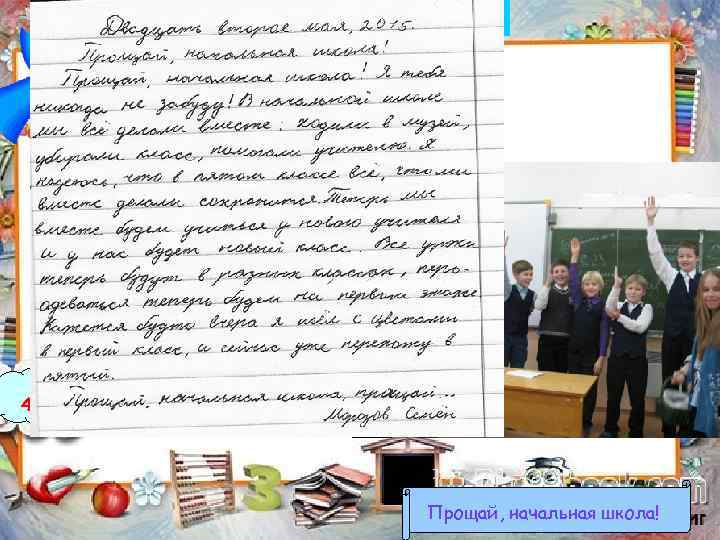 Двадцать второе мая, 2015.
Прощай, начальная школа!
Прощай, начальная школа! Я тебя
никогда не забуду! В начальной школе
мы всё делали вместе: ходили в музей,
убирали класс, помогали учителю. Я
надеюсь, что в пятом классе всё, что мы
вместе делали сохранится. Теперь мы
вместе будем учиться у нового учителя
и у нас будет новый класс. Все уроки
теперь будут в разных классах, пере-
одеваться теперь будем на первом этаже.
Кажется будто вчера я шёл с цветами
в первый класс, и сейчас уже перехожу в
пятый.
Прощай, начальная школа, прощай...
Морозов Семён
4
Прощай, начальная школа!